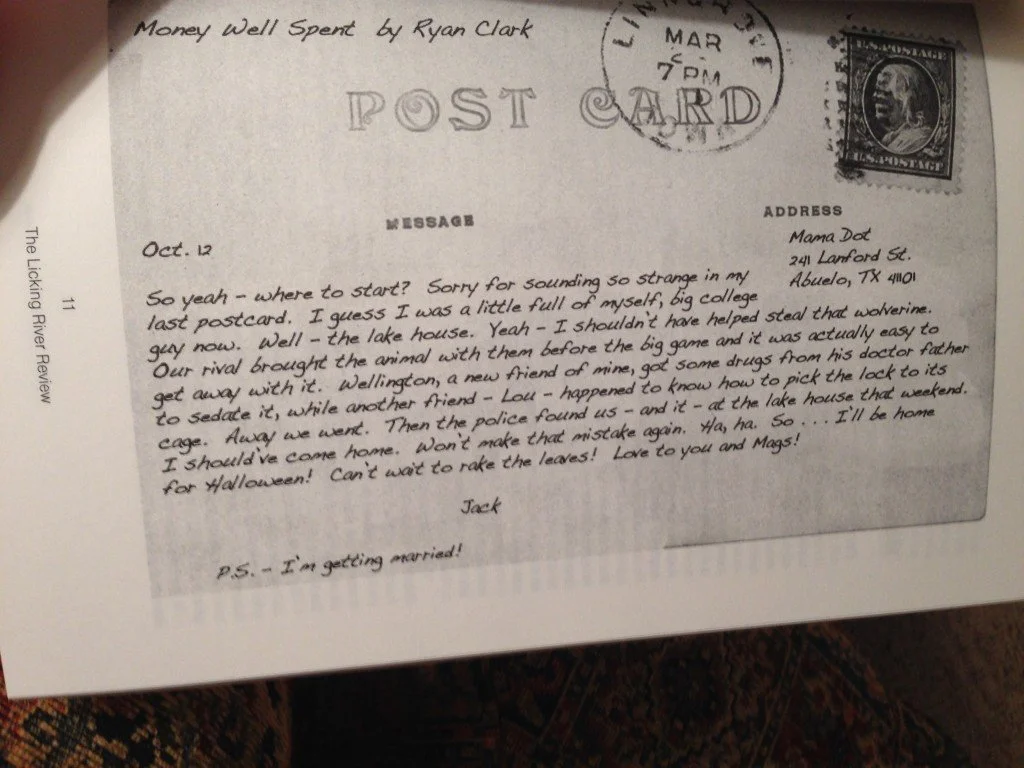 Money Well Spent by Ryan Clark
MAR
7 PM
POST CARD
U.S. POSTAGE
U.S. POSTAGE
MESSAGE
ADDRESS
Oct. 12
Mama Dot
241 Lanford St.
Abuelo, TX 41101
So yeah – where to start? Sorry for sounding so strange in my
last postcard. I guess I was a little full of myself, big college
guy now. Well – the lake house. Yeah – I shouldn't have helped steal that wolverine.
Our rival brought the animal with them before the big game and it was actually easy to
get away with it. Wellington, a new friend of mine, got some drugs from his doctor father
to sedate it, while another friend – Lou – happened to know how to pick the lock to its
cage. Away we went. Then the police found us – and it – at the lake house that weekend.
I should've come home. Won't make that mistake again. Ha, ha. So . . . I'll be home
for Halloween! Can't wait to rake the leaves! Love to you and Mags!
Jack
P.S. – I'm getting married!
11
The Licking River Review